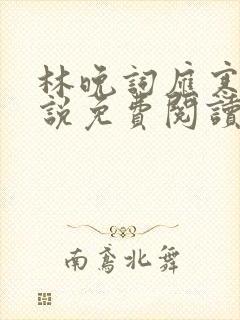 林晚詞雁寒
說免費閱讀
南鳶北舞